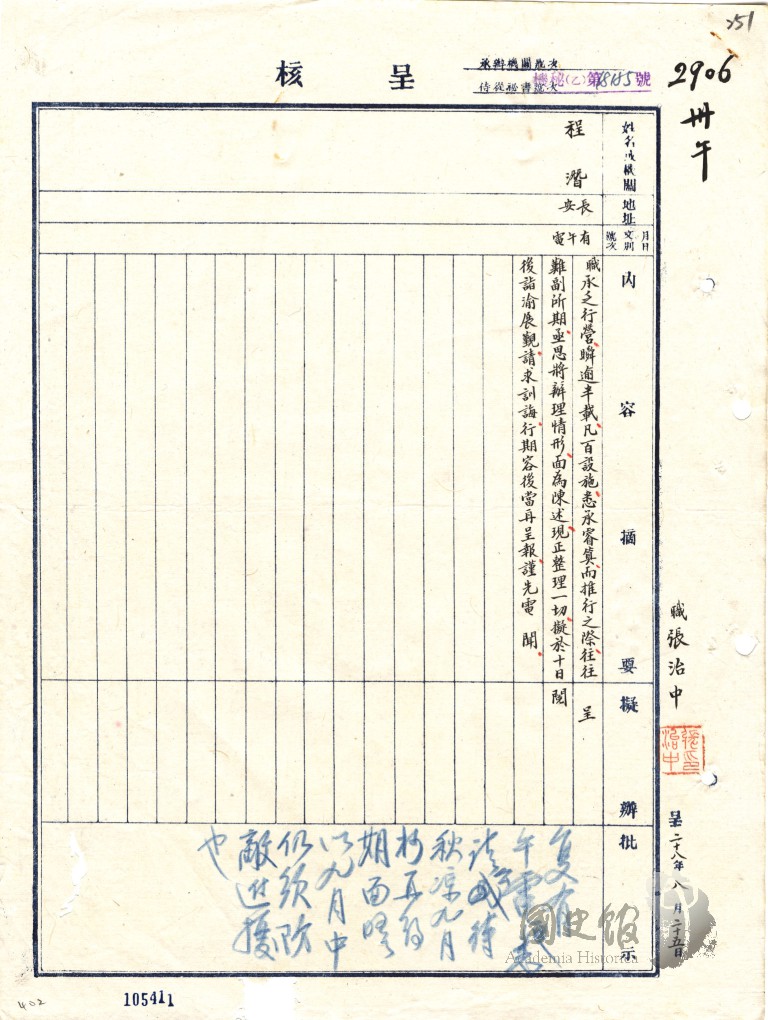 251
2906
卅午
呈核
承辦機關號次
機秘(乙)第18185號
侍從秘書號次
姓名或機關
程潛
地址
長安
月日
文別
號次
有午電
內容摘要
職承乏行營、瞬逾半載、凡百設施、悉承睿算、而推行之際、往往
難副所期、亟思將辦理情形、面為陳述、現正整理一切、擬於十日
後詣渝展覲、請求訓誨、行期容後當再呈報、謹先電聞、
擬辦
呈
閱
批示
復有
午電悉
待
秋涼九月
杪再約
期面晤
以九月中
仍須防
敵進擾
也
職張治中
張治中印
呈二十八年八月二十五日
國史館
Academia Historica
402
105411